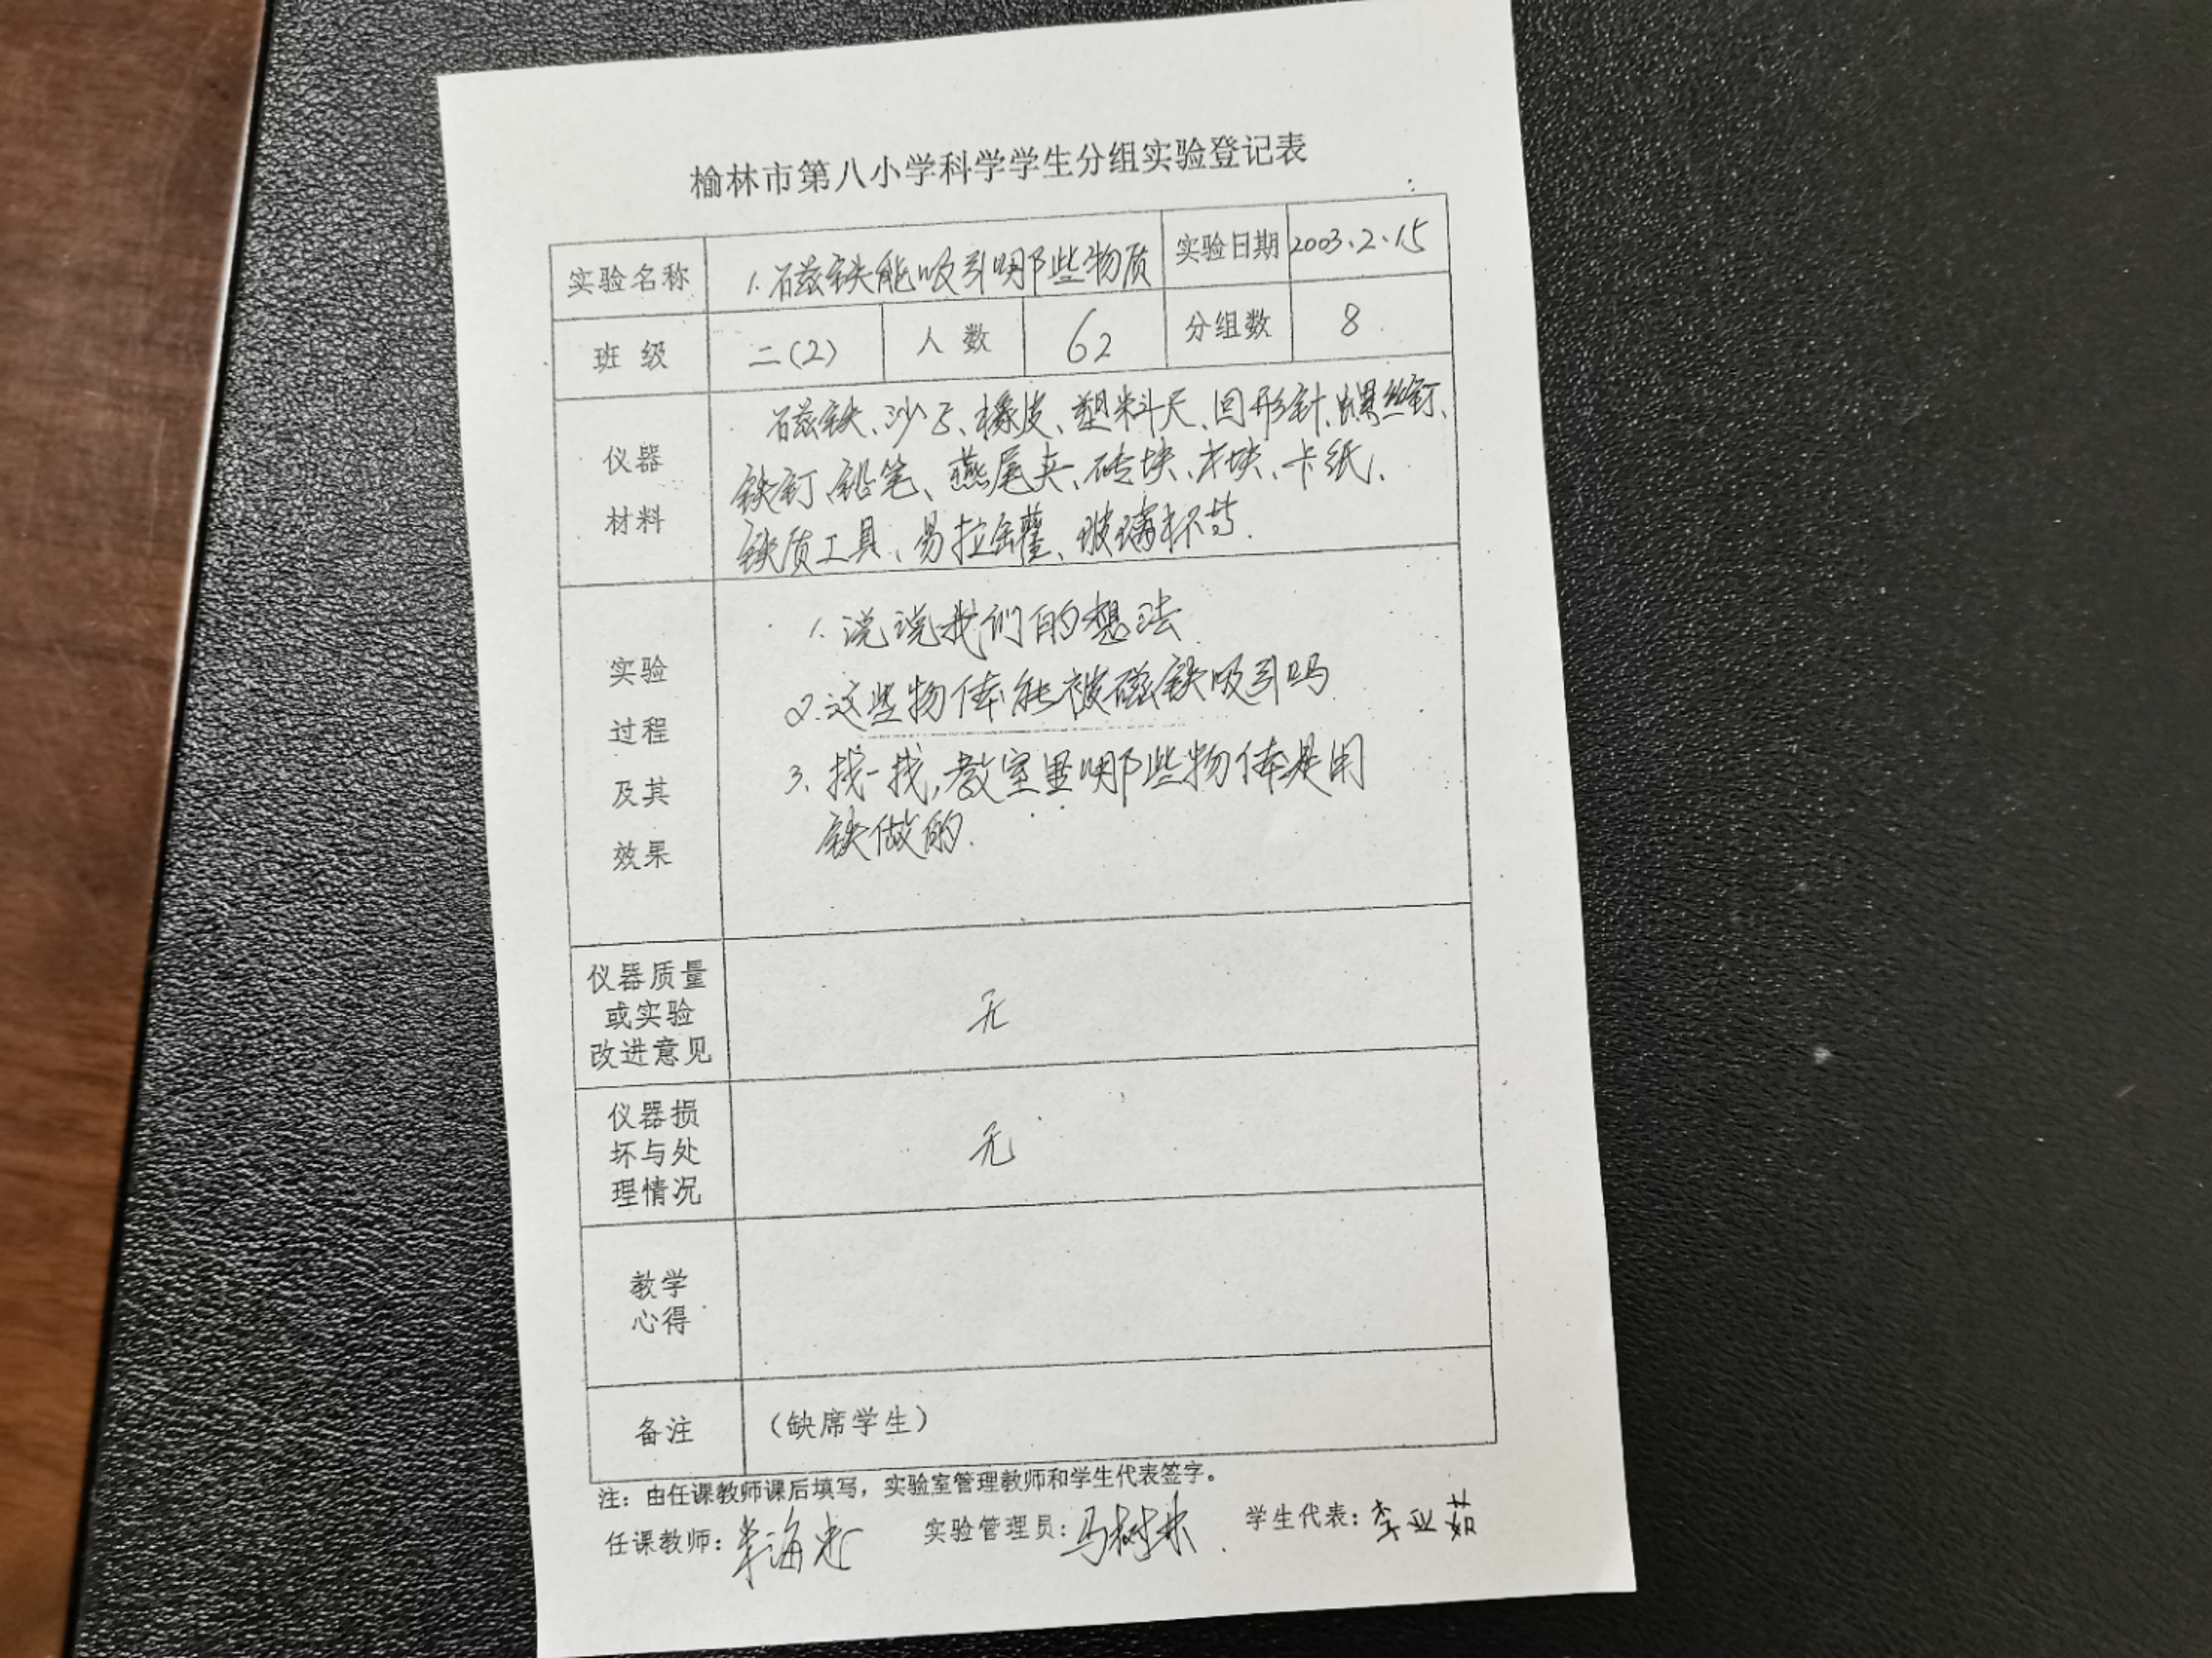 榆林市第八小学科学学生分组实验登记表
实验名称 1.磁铁能吸引哪些物质 实验日期 2003.2.15
班级 二(2) 人数 62 分组数 8
仪器
材料
磁铁、沙子、橡皮、塑料尺、回形针、螺丝钉、
铁钉、铅笔、燕尾夹、砖块、木块、卡纸、
铁质工具、易拉罐、玻璃杯等.
实验
过程
及其
效果
1.说说我们的想法
2.这些物体能被磁铁吸引吗
3.找一找,教室里哪些物体是用
铁做的.
仪器质量
或实验
改进意见
无
仪器损
坏与处
理情况
无
教学
心得
备注 （缺席学生）
注：由任课教师课后填写，实验室管理教师和学生代表签字。
任课教师： 实验管理员：马树林 学生代表：李亚茹